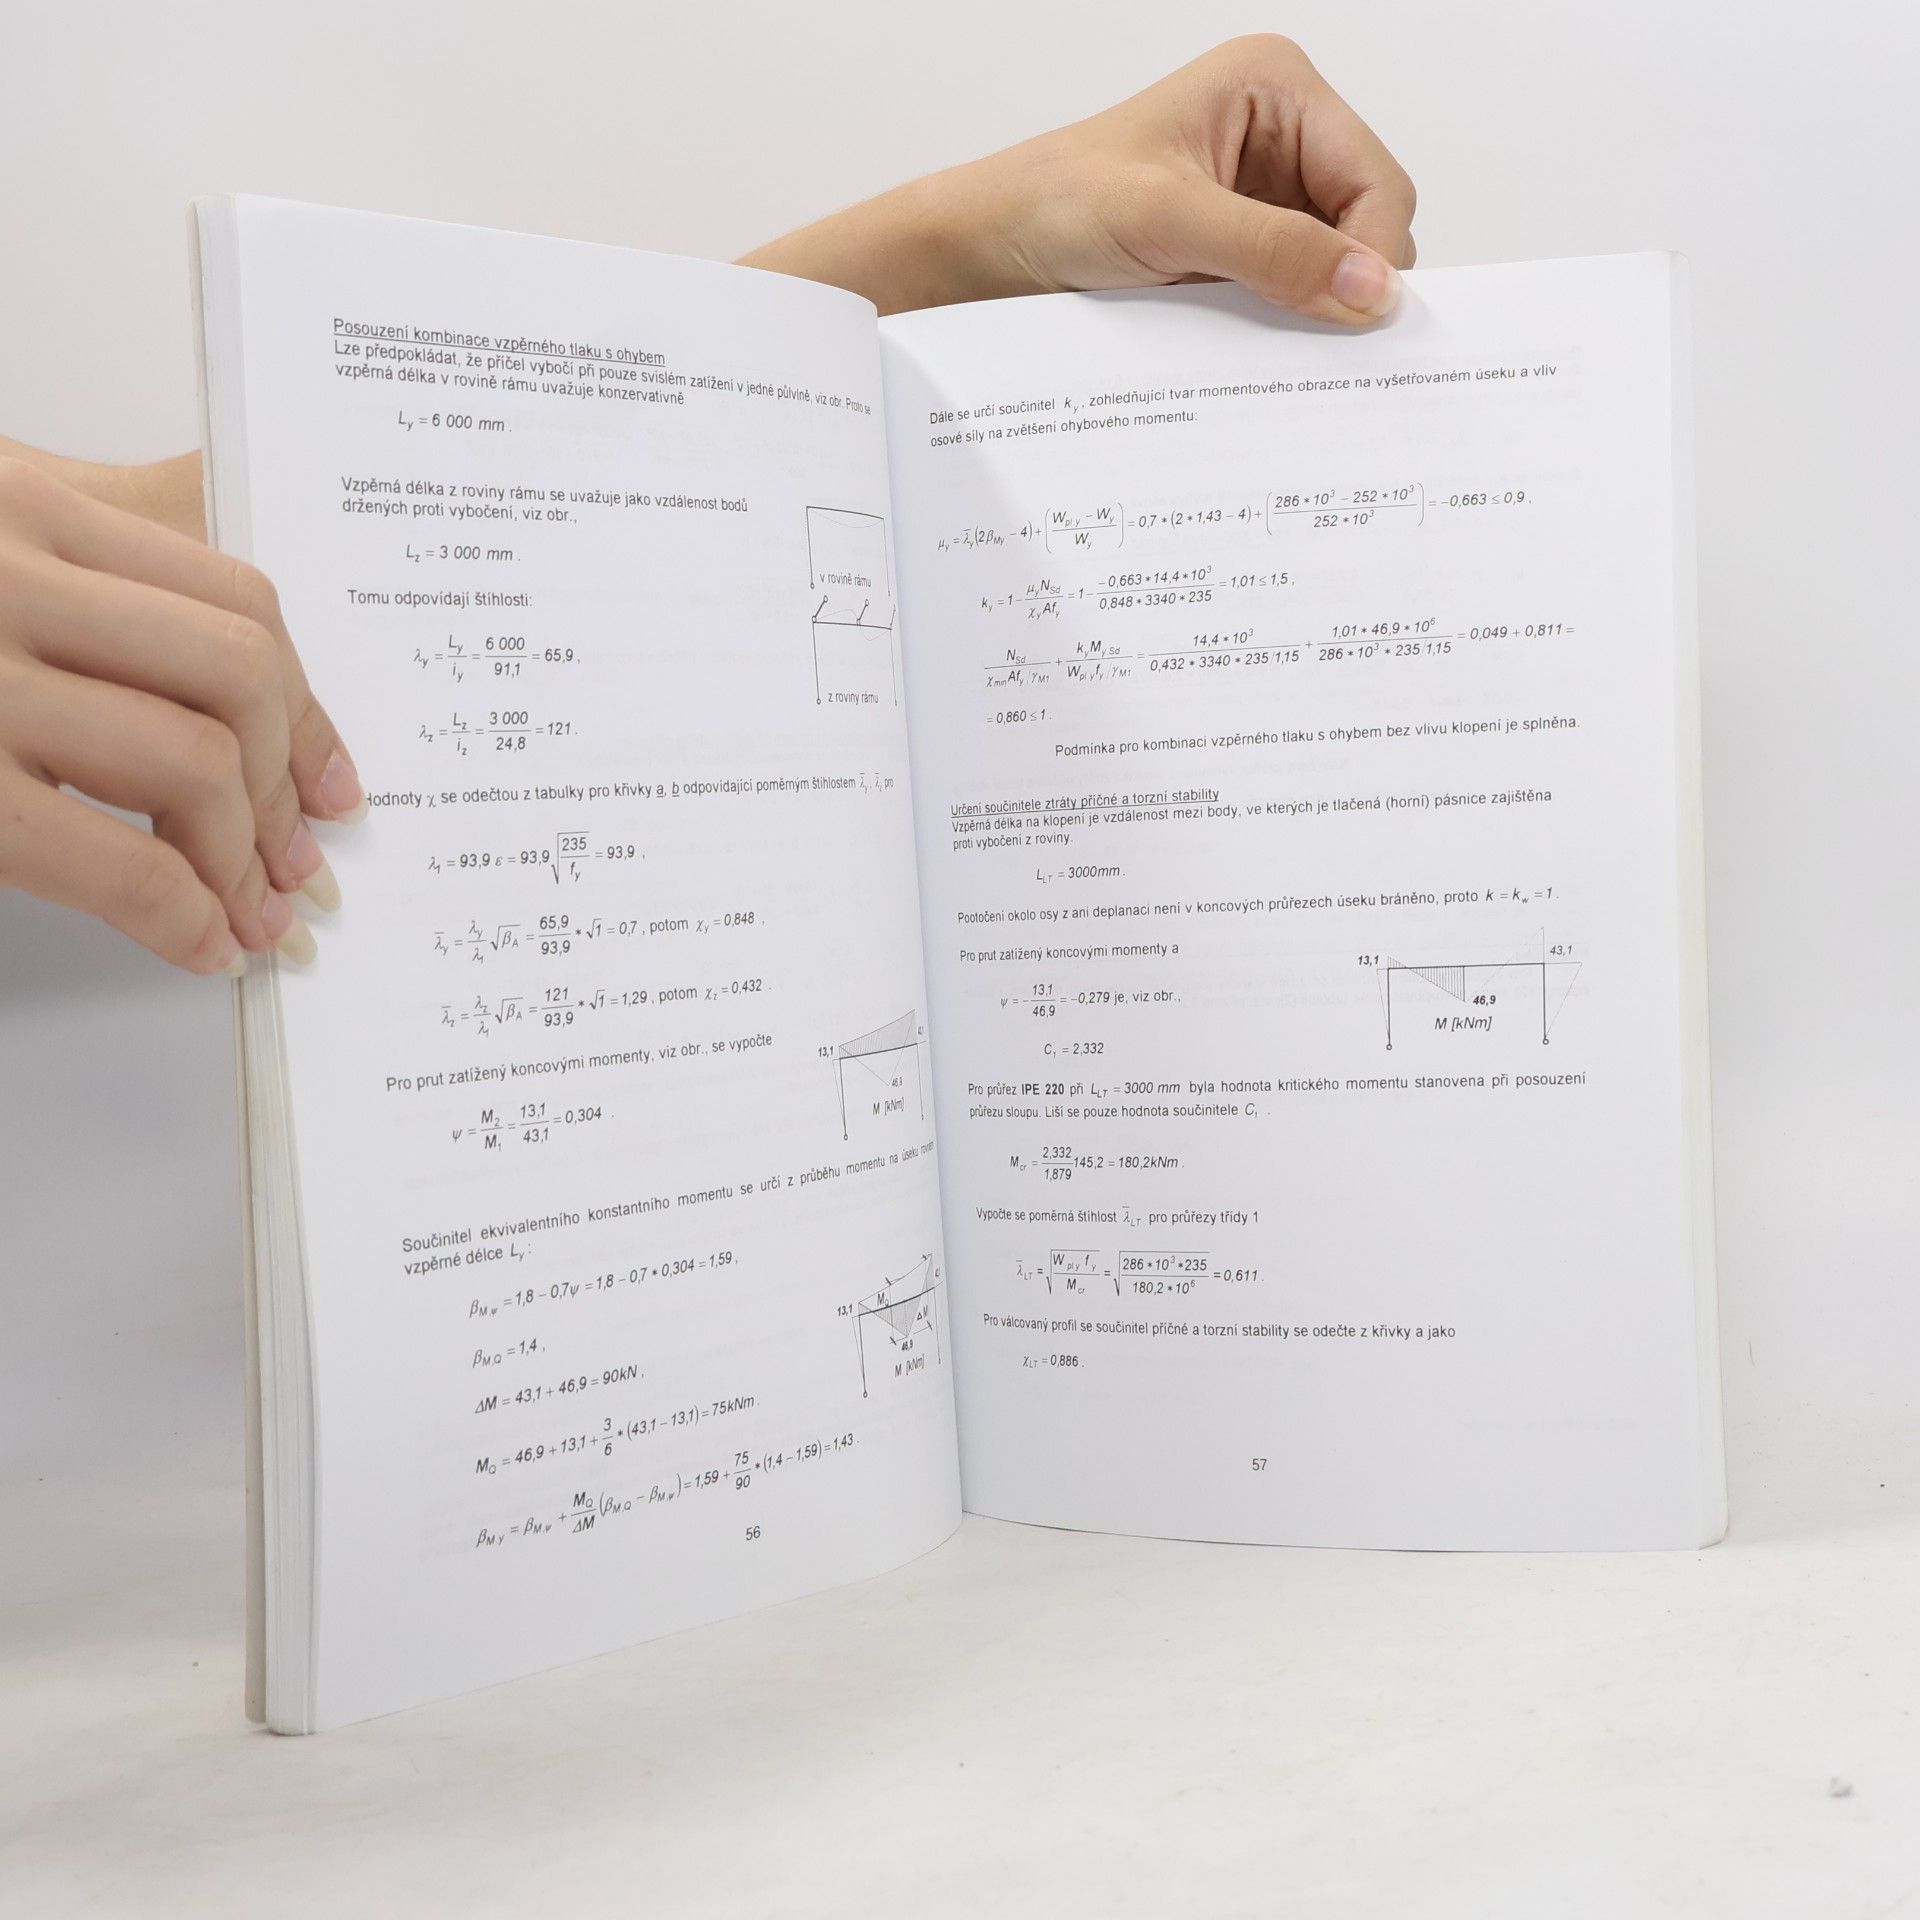 Posouzení kombinace vzpěrného tlaku s ohybem
Lze předpokládat, že příčel vybočí při pouze svislém zatížení v jedné půlvlně, viz obr. Proto se
vzpěrná délka v rovině rámu uvažuje konzervativně
L_y = 6 000 mm .
Vzpěrná délka z roviny rámu se uvažuje jako vzdálenost bodů
držených proti vybočení, viz obr.,
L_z = 3 000 mm .
v rovině rámu
Tomu odpovídají štíhlosti:
λ_y = L_y / i_y = 6 000 / 91,1 = 65,9 ,
z roviny rámu
λ_z = L_z / i_z = 3 000 / 24,8 = 121 .
Hodnoty χ se odečtou z tabulky pro křivky a, b odpovídající poměrným štíhlostem λ̄_y, λ̄_z pro
λ_1 = 93,9 ε = 93,9 √(235 / f_y) = 93,9 ,
λ̄_y = λ_y / λ_1 √β_A = 65,9 / 93,9 * √1 = 0,7 , potom χ_y = 0,848 ,
λ̄_z = λ_z / λ_1 √β_A = 121 / 93,9 * √1 = 1,29 , potom χ_z = 0,432 .
Pro prut zatížený koncovými momenty, viz obr., se vypočte
13,1
46,9
M [kNm]
ψ = M_2 / M_1 = 13,1 / 43,1 = 0,304 .
Součinitel ekvivalentního konstantního momentu se určí z průběhu momentu na úseku rovném
vzpěrné délce L_y :
β_M,ψ = 1,8 − 0,7ψ = 1,8 − 0,7 * 0,304 = 1,59 ,
13,1
M_Q
ΔM
46,9
M [kNm]
β_M,Q = 1,4 ,
ΔM = 43,1 + 46,9 = 90kN ,
M_Q = 46,9 + 13,1 + 3/6 * (43,1 − 13,1) = 75kNm .
β_M,y = β_M,ψ + M_Q / ΔM (β_M,Q − β_M,ψ) = 1,59 + 75/90 * (1,4 − 1,59) = 1,43 .
56
Dále se určí součinitel k_y , zohledňující tvar momentového obrazce na vyšetřovaném úseku a vliv
osové síly na zvětšení ohybového momentu:
μ_y = λ̄_y (2β_My − 4) + ((W_pl,y − W_y) / W_y) = 0,7 * (2 * 1,43 − 4) + ((286 * 10³ − 252 * 10³) / (252 * 10³)) = −0,663 ≤ 0,9 ,
k_y = 1 − μ_y N_Sd / (χ_y A f_y) = 1 − (−0,663 * 14,4 * 10³) / (0,848 * 3340 * 235) = 1,01 ≤ 1,5 ,
N_Sd / (χ_min A f_y / γ_M1) + k_y M_y,Sd / (W_pl,y f_y / γ_M1) = 14,4 * 10³ / (0,432 * 3340 * 235/1,15) + 1,01 * 46,9 * 10⁶ / (286 * 10³ * 235/1,15) = 0,049 + 0,811 =
= 0,860 ≤ 1 .
Podmínka pro kombinaci vzpěrného tlaku s ohybem bez vlivu klopení je splněna.
Určení součinitele ztráty příčné a torzní stability
Vzpěrná délka na klopení je vzdálenost mezi body, ve kterých je tlačená (horní) pásnice zajištěna
proti vybočení z roviny.
L_LT = 3000mm .
Pootočení okolo osy z ani deplanaci není v koncových průřezech úseku bráněno, proto k = k_w = 1 .
Pro prut zatížený koncovými momenty a
ψ = − 13,1 / 46,9 = −0,279 je, viz obr.,
C_1 = 2,332
13,1
43,1
46,9
M [kNm]
Pro průřez IPE 220 při L_LT = 3000 mm byla hodnota kritického momentu stanovena při posouzení
průřezu sloupu. Liší se pouze hodnota součinitele C_1 .
M_cr = 2,332 / 1,879 145,2 = 180,2kNm .
Vypočte se poměrná štíhlost λ̄_LT pro průřezy třídy 1
λ̄_LT = √(W_pl,y f_y / M_cr) = √(286 * 10³ * 235 / 180,2 * 10⁶) = 0,611 .
Pro válcovaný profil se součinitel příčné a torzní stability se odečte z křivky a jako
χ_LT = 0,886 .
57